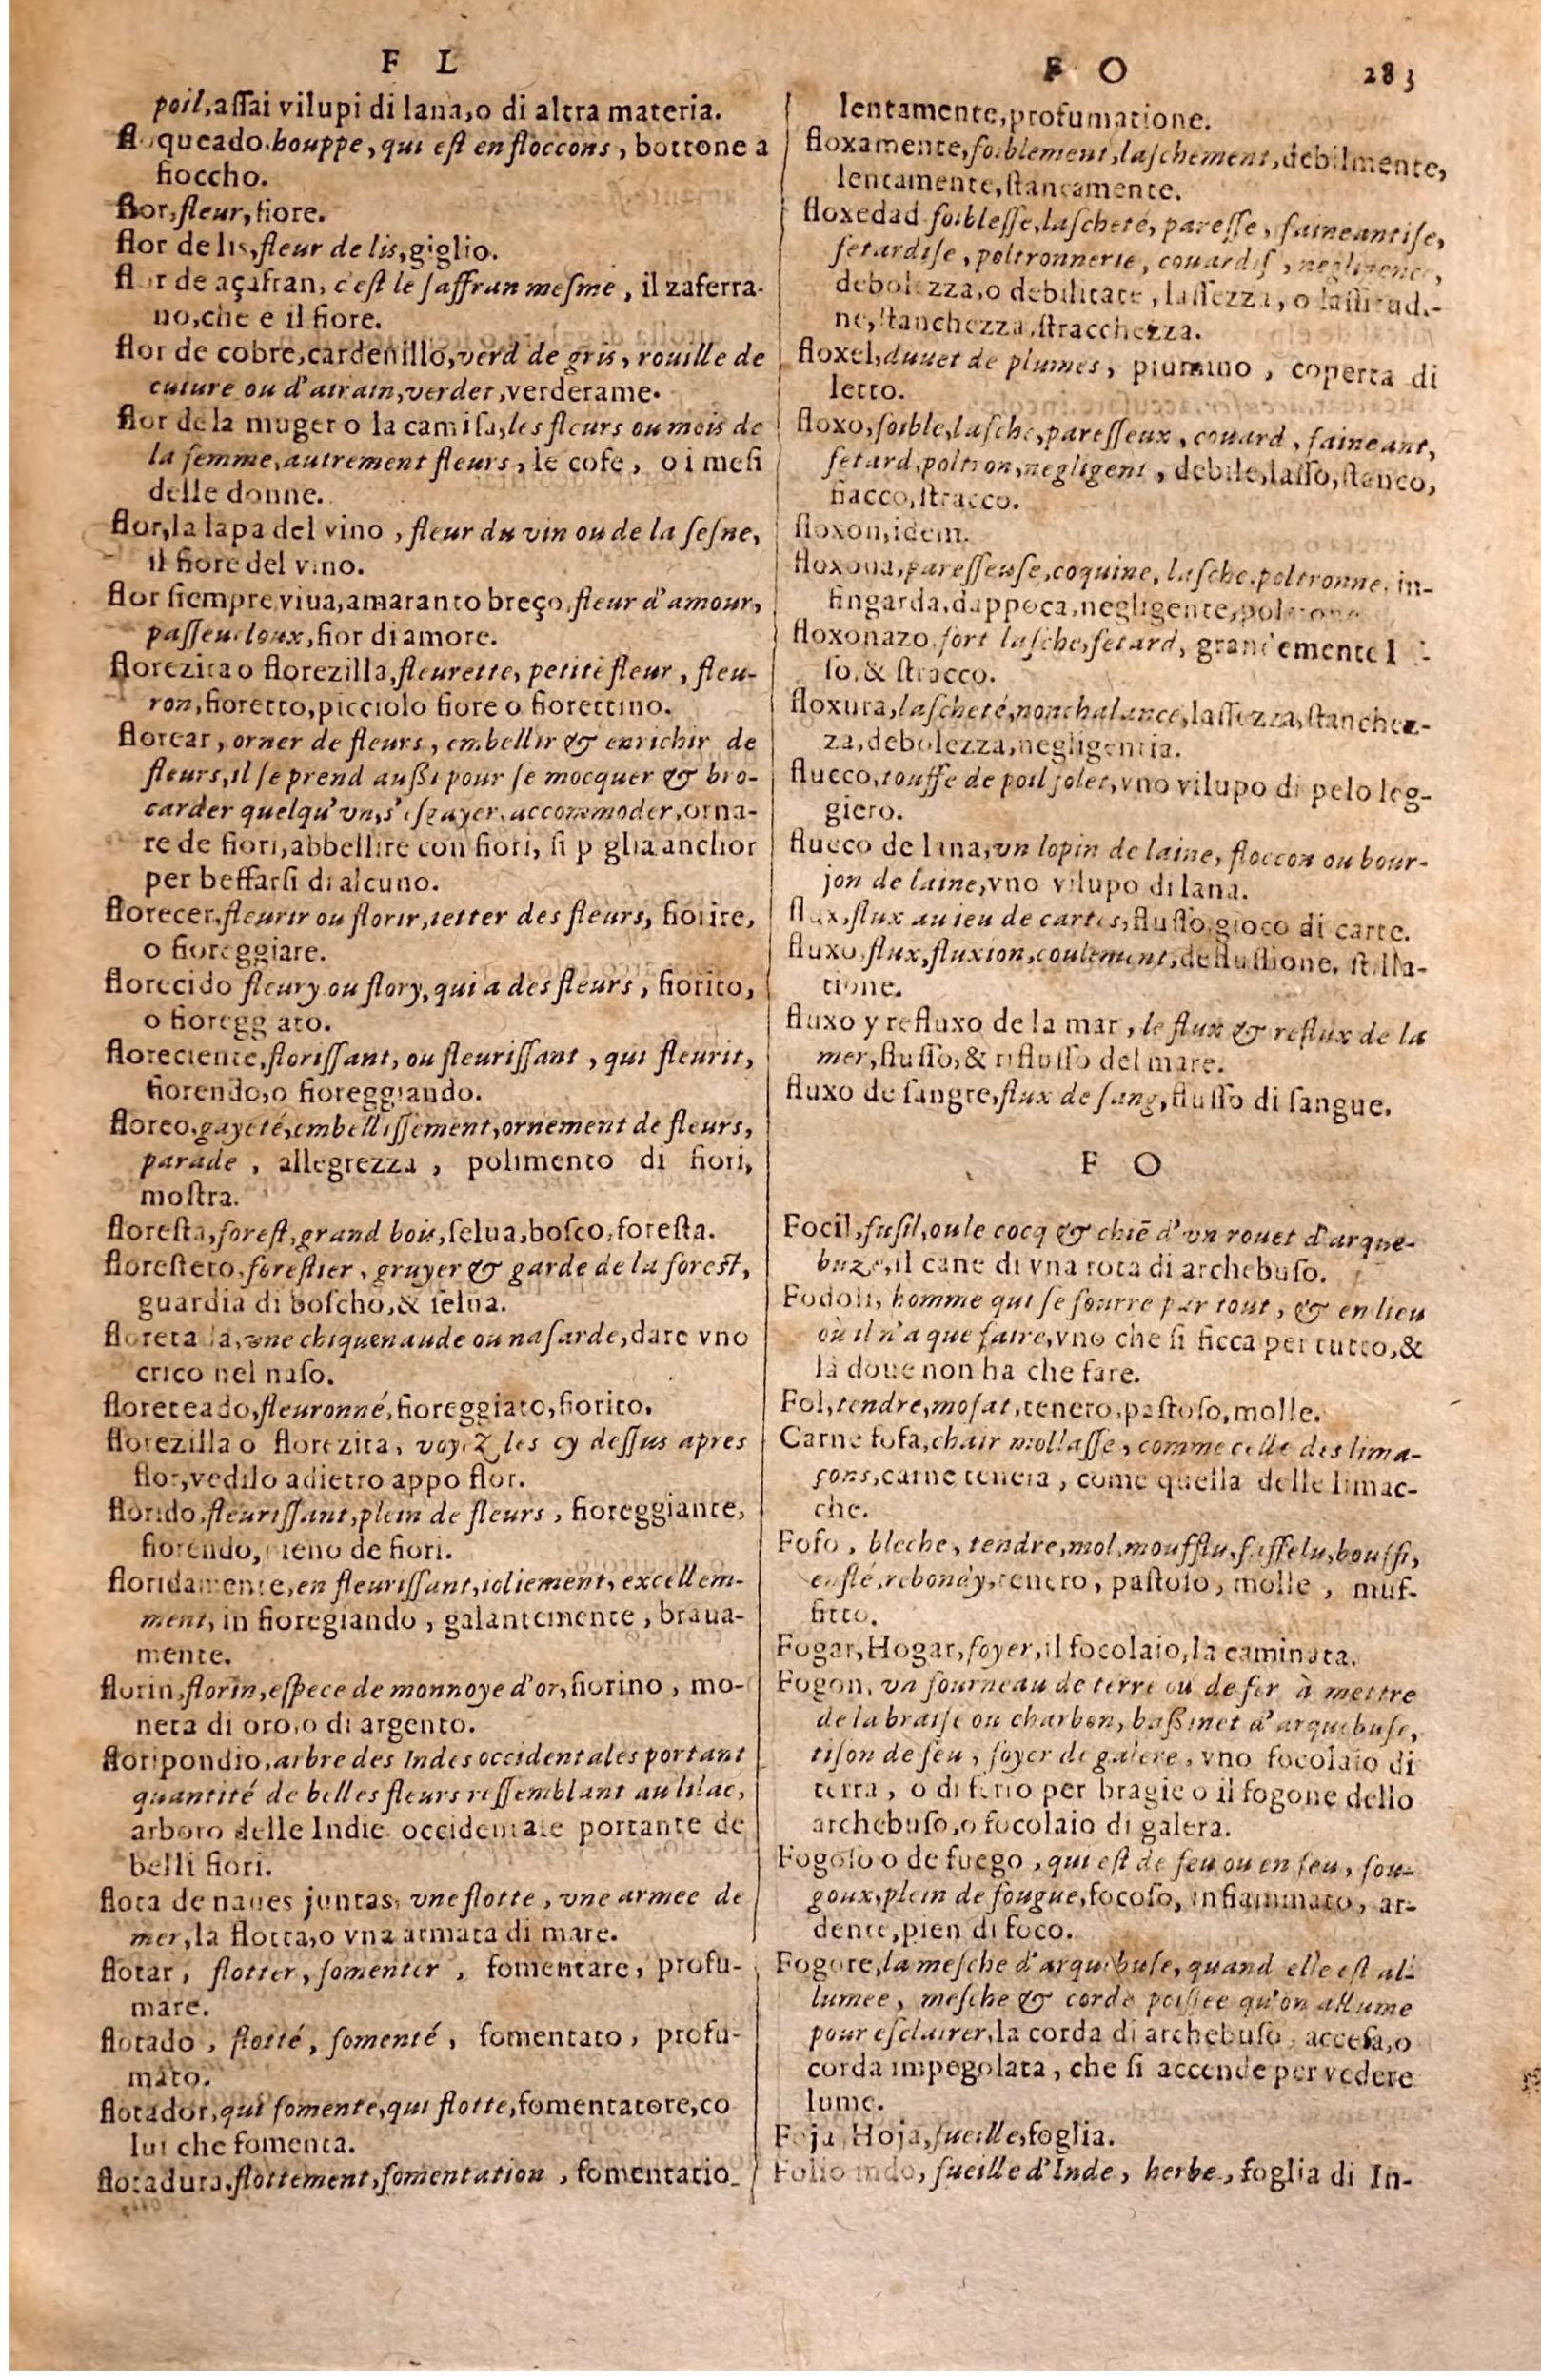 F L
poil, aſſai vilupi di lana, o di altra materia.
queado. houppe, qui eſt en floccons, bottone a
fioccho.
flor, fleur, fiore.
flor de lis, fleur de lis, giglio.
flor de açafran, c'eſt le ſaffran meſme, il zaferra-
no, che e il fiore.
flor de cobre, cardenillo, verd de gris, rouille de
cuiure ou d'airain, verdet, verderame.
flor de la muger o la camiſa, les fleurs ou mois de
la femme, autrement fleurs, le coſe, o i meſi
delle donne.
flor, la lapa del vino, fleur du vin ou de la ſeſne,
il fiore del vino.
flor ſiempre viua, amaranto breço, fleur d'amour,
paſſeueloux, fior di amore.
florezita o florezilla, fleurette, petite fleur, fleu-
ron, fioretto, picciolo fiore o fiorettino.
florear, orner de fleurs, embellir & enrichir de
fleurs, il ſe prend außi pour ſe mocquer & bro-
carder quelqu'vn, s'eſgayer, accommoder, orna-
re de fiori, abbellire con fiori, ſi p glia anchor
per beffarſi di alcuno.
florecer, fleurir ou florir, ietter des fleurs, fiorire,
o fioreggiare.
florecido fleury ou flory, qui a des fleurs, fiorito,
o fioregg ato.
floreciente, floriſſant, ou fleuriſſant, qui fleurit,
fiorendo, o fioreggiando.
floreo, gayeté, embelliſſement, ornement de fleurs,
parade, allegrezza, polimento di fiori,
moſtra.
floreſta, foreſt, grand bois, ſelua, boſco, foreſta.
floreſtero, foreſtier, gruyer & garde de la foreſt,
guardia di boſcho, & ſelua.
floreta da, vne chiquenaude ou naſarde, dare vno
crico nel naſo.
floreteado, fleuronné, fioreggiato, fiorito.
florezilla o florezita, voyez les cy deſſus apres
flor, vedilo adietro appo flor.
florido, fleuriſſant, plein de fleurs, fioreggiante,
fiorendo, pieno de fiori.
floridamente, en fleuriſſant, ioliement, excellem-
ment, in fioregiando, galantemente, braua-
mente.
florin, florin, eſpece de monnoye d'or, fiorino, mo-
neta di oro, o di argento.
floripondio, arbre des Indes occidentales portant
quantité de belles fleurs reſſemblant au lilac,
arboro delle Indie occidentale portante de
belli fiori.
flota de naues juntas, vne flotte, vne armee de
mer, la flotta, o vna armata di mare.
flotar, flotter, fomenter, fomentare, profu-
mare.
flotado, flotté, fomenté, fomentato, profu-
mato.
flotador, qui fomente, qui flotte, fomentatore, co
lui che fomenta.
flotadura, flottement, fomentation, fomentatio-
F O 283
lentamente, profumatione.
floxamente, foiblement, laſchement, debilmente,
lentamente, ſtancamente.
floxedad foibleſſe, laſcheté, pareſſe, faineantiſe,
fetardiſe, poltronnerie, couardiſ, negligence,
debolezza, o debilitate, laſſezza, o laſſitudi-
ne, ſtanchezza, ſtracchezza.
floxel, duuet de plumes, piumino, coperta di
letto.
floxo, foible, laſche, pareſſeux, couard, faineant,
fetard, poltron, negligent, debile, laſſo, ſtanco,
fiacco, ſtracco.
floxon, idem.
floxona, pareſſeuſe, coquine, laſche, poltronne, in-
fingarda, dappoca, negligente, poltrone
floxonazo fort laſche, fetard, grandemente l ſ-
ſo, & ſtracco.
floxura, laſcheté, nonchalance, laſſezza, ſtanchez-
za, debolezza, negligentia.
flueco, touffe de poil folet, vno vilupo di pelo leg-
giero.
flueco de lana, vn lopin de laine, floccon ou bour-
jon de laine, vno vilupo di lana.
flux, flux au ieu de cartes, fluſſo, gioco di carte.
fluxo, flux, fluxion, coulement, defluſſione, ſtilla-
tione.
fluxo y refluxo de la mar, le flux & reflux de la
mer, fluſſo, & rifluſſo del mare.
fluxo de ſangre, flux de ſang, fluſſo di ſangue.
F O
Focil, fuſil, ou le cocq & chiē d'vn rouet d'arque-
buze, il cane di vna rota di archebuſo.
Fodoli, homme qui ſe fourre par tout, & en lieu
où il n'a que faire, vno che ſi ficca per tutto, &
là doue non ha che fare.
Fol, tendre, moſat, tenero, paſtoſo, molle.
Carne fofa, chair mollaſſe, comme celle des lima-
çons, carne tenera, come quella delle limac-
che.
Fofo, bleche, tendre, mol, moufflu, faffelu, bouffi,
enflé, rebondy, tenero, paſtoſo, molle, muf-
fitto.
Fogar, Hogar, foyer, il focolaio, la caminata.
Fogon, vn fourneau de terre ou de fer à mettre
de la braiſe ou charbon, baßinet d'arquebuſe,
tiſon de feu, foyer de galere, vno focolaio di
terra, o di ferro per bragie o il fogone dello
archebuſo, o focolaio di galera.
Fogoſo o de fuego, qui eſt de feu ou en feu, fou-
goux, plein de fougue, focoſo, infiammato, ar-
dente, pien di foco.
Fogore, la meſche d'arquebuſe, quand elle eſt al-
lumee, meſche & corde poiſſee qu'on allume
pour eſclairer, la corda di archebuſo, acceſa, o
corda impegolata, che ſi accende per vedere
lume.
Foja, Hoja, fueille, foglia.
Folio indo, fueille d'Inde, herbe, foglia di In-